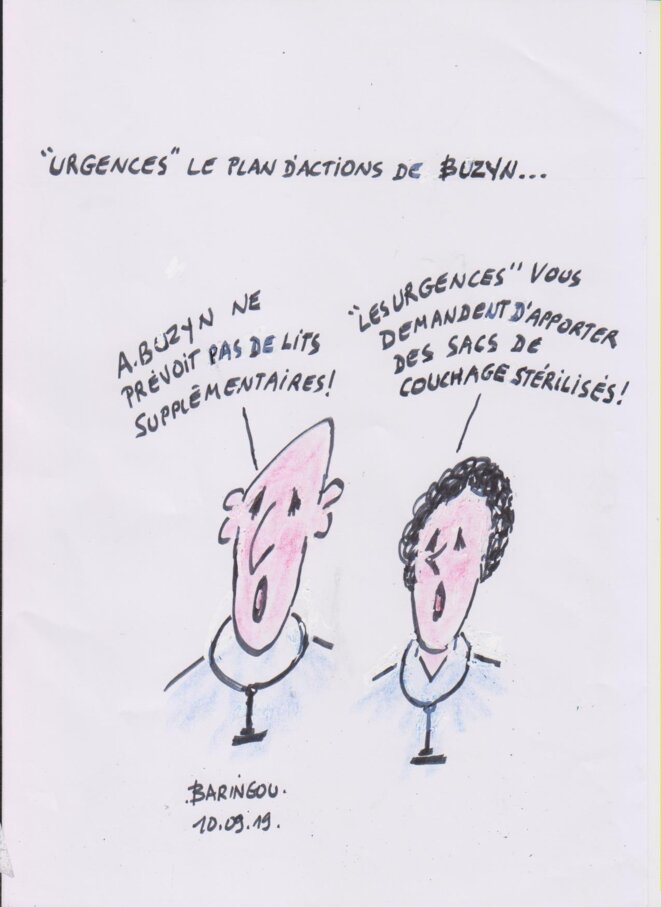 "URGENCES" LE PLAN D'ACTIONS DE BUZYN...
A. BUZYN NE
PRÉVOIT PAS DE LITS
SUPPLÉMENTAIRES!
"LES URGENCES" VOUS
DEMANDENT D'APPORTER
DES SACS DE
COUCHAGE STÉRILISÉS!
.BARINGOU.
10.09.19.